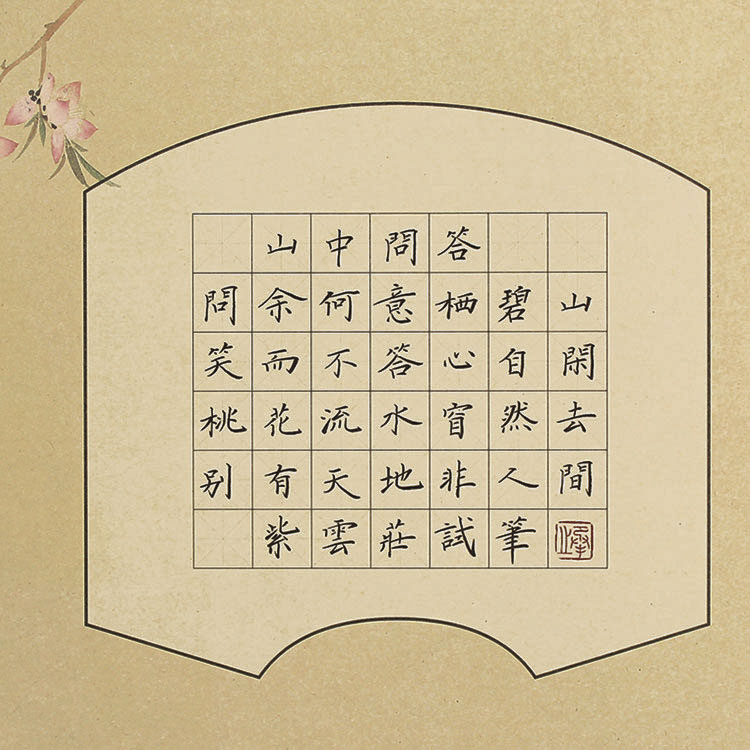 山中問答
問余何意栖碧山
笑而不答心自閑
桃花流水窅然去
别有天地非人間
紫雲莊試筆